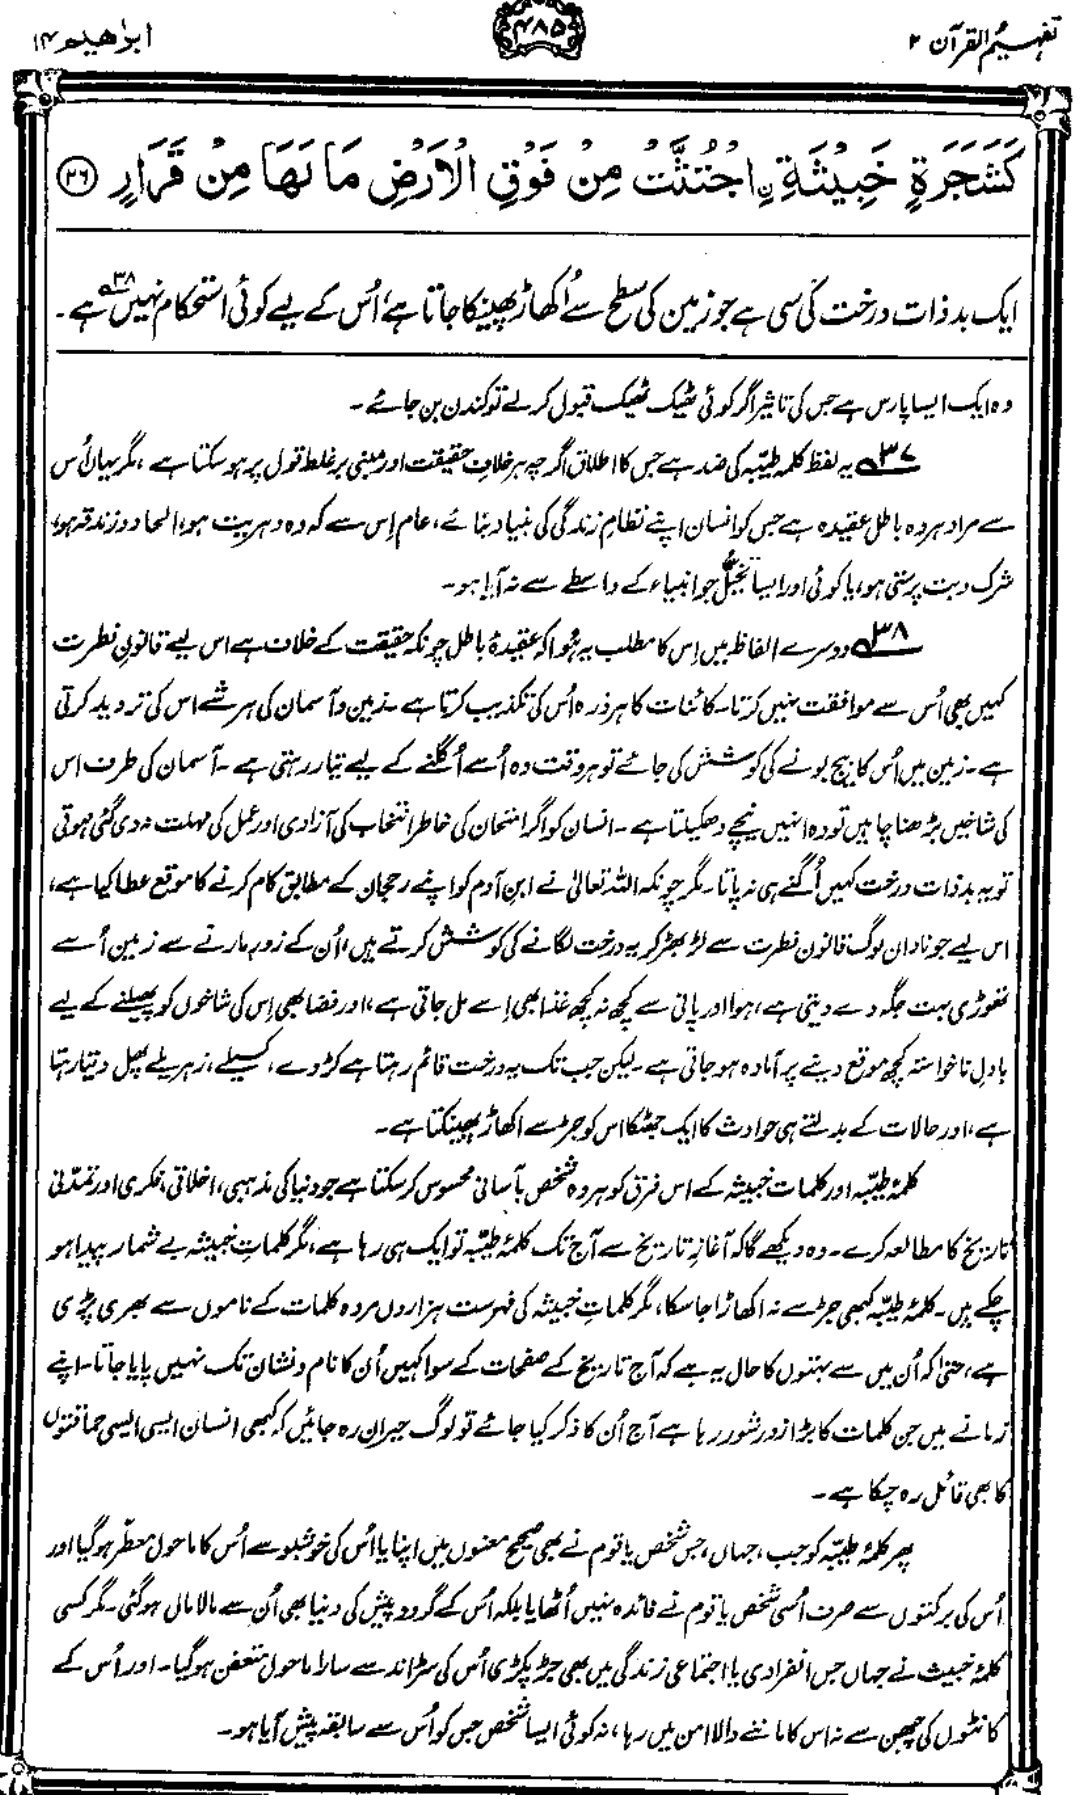 تفہیم القرآن ۲
۴۸۵
ابراھیم ۱۴
كَشَجَرَةٍ خَبِيْثَةِ نِ اجْتُثَّتْ مِنْ فَوْقِ الْاَرْضِ مَا لَهَا مِنْ قَرَارٍ ﴿۲۶﴾
ایک بد ذات درخت کی سی ہے جو زمین کی سطح سے اُکھاڑ پھینکا جاتا ہے، اُس کے لیے کوئی استحکام نہیں ۳۸ ہے۔
وہ ایک ایسا پارس ہے جس کی تاثیر اگر کوئی ٹھیک ٹھیک قبول کر لے تو کندن بن جائے۔
۳۷ یہ لفظ کلمۂ طیّبہ کی ضد ہے جس کا اطلاق اگرچہ ہر خلافِ حقیقت اور مبنی بر غلط قول پر ہو سکتا ہے، مگر یہاں اُس
سے مراد ہر وہ باطل عقیدہ ہے جس کو انسان اپنے نظامِ زندگی کی بنیاد بنائے، عام اِس سے کہ وہ دہریت ہو، الحاد و زندقہ ہو،
شرک و بت پرستی ہو، یا کوئی اور ایسا تخیّل جو انبیاء کے واسطے سے نہ آیا ہو۔
۳۸ دوسرے الفاظ میں اِس کا مطلب یہ ہُوا کہ عقیدۂ باطل چونکہ حقیقت کے خلاف ہے اس لیے قانونِ فطرت
کہیں بھی اُس سے موافقت نہیں کرتا۔ کائنات کا ہر ذرہ اُس کی تکذیب کرتا ہے۔ زمین و آسمان کی ہر شے اس کی تردید کرتی
ہے۔ زمین میں اُس کا بیج بونے کی کوشش کی جائے تو ہر وقت وہ اُسے اُگلنے کے لیے تیار رہتی ہے۔ آسمان کی طرف اس
کی شاخیں بڑھنا چاہیں تو وہ انہیں نیچے دھکیلتا ہے۔ انسان کو اگر امتحان کی خاطر انتخاب کی آزادی اور عمل کی مہلت نہ دی گئی ہوتی
تو یہ بد ذات درخت کہیں اُگنے ہی نہ پاتا۔ مگر چونکہ اللہ تعالیٰ نے ابنِ آدم کو اپنے رجحان کے مطابق کام کرنے کا موقع عطا کیا ہے،
اس لیے جو نادان لوگ قانونِ فطرت سے لڑ بھڑ کر یہ درخت لگانے کی کوشش کرتے ہیں، اُن کے زور مارنے سے زمین اُسے
تھوڑی بہت جگہ دے دیتی ہے، ہوا اور پانی سے کچھ نہ کچھ غذا بھی اِسے مل جاتی ہے، اور فضا بھی اِس کی شاخوں کو پھیلنے کے لیے
بادلِ ناخواستہ کچھ موقع دینے پر آمادہ ہو جاتی ہے۔ لیکن جب تک یہ درخت قائم رہتا ہے کڑوے، کسیلے، زہریلے پھل دیتا رہتا
ہے، اور حالات کے بدلتے ہی حوادث کا ایک جھٹکا اس کو جڑ سے اکھاڑ پھینکتا ہے۔
کلمۂ طیّبہ اور کلماتِ خبیثہ کے اس فرق کو ہر وہ شخص بآسانی محسوس کر سکتا ہے جو دنیا کی مذہبی، اخلاقی، فکری اور تمدّنی
تاریخ کا مطالعہ کرے۔ وہ دیکھے گا کہ آغازِ تاریخ سے آج تک کلمۂ طیّبہ تو ایک ہی رہا ہے، مگر کلماتِ خبیثہ بے شمار پیدا ہو
چکے ہیں۔ کلمۂ طیّبہ کبھی جڑ سے نہ اکھاڑا جا سکا، مگر کلماتِ خبیثہ کی فہرست ہزاروں مردہ کلمات کے ناموں سے بھری پڑی
ہے، حتیٰ کہ اُن میں سے بہتوں کا حال یہ ہے کہ آج تاریخ کے صفحات کے سوا کہیں اُن کا نام و نشان تک نہیں پایا جاتا۔ اپنے
زمانے میں جن کلمات کا بڑا زور شور رہا ہے آج اُن کا ذکر کیا جائے تو لوگ حیران رہ جائیں کہ کبھی انسان ایسی ایسی حماقتوں
کا بھی قائل رہ چکا ہے۔
پھر کلمۂ طیّبہ کو جب، جہاں، جس شخص یا قوم نے بھی صحیح معنوں میں اپنایا اُس کی خوشبو سے اُس کا ماحول معطّر ہو گیا اور
اُس کی برکتوں سے صرف اُسی شخص یا قوم نے فائدہ نہیں اُٹھایا بلکہ اُس کے گرد و پیش کی دنیا بھی اُن سے مالا مال ہو گئی۔ مگر کسی
کلمۂ خبیث نے جہاں جس انفرادی یا اجتماعی زندگی میں بھی جڑ پکڑی اُس کی سڑاند سے سارا ماحول متعفن ہو گیا۔ اور اُس کے
کانٹوں کی چبھن سے نہ اس کا ماننے والا امن میں رہا، نہ کوئی ایسا شخص جس کو اُس سے سابقہ پیش آیا ہو۔